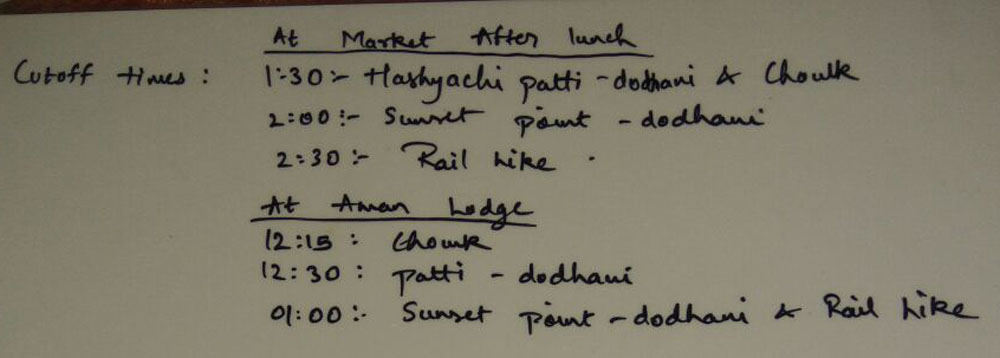 At Market After lunch
Cutoff times : 1:30:- Hashyachi patti - dodhani & Chouk
2:00:- Sunset point - dodhani
2:30:- Rail hike .
At Aman Lodge
12:15 : Chouk
12:30 : patti - dodhani
01:00:- Sunset point - dodhani & Rail hike